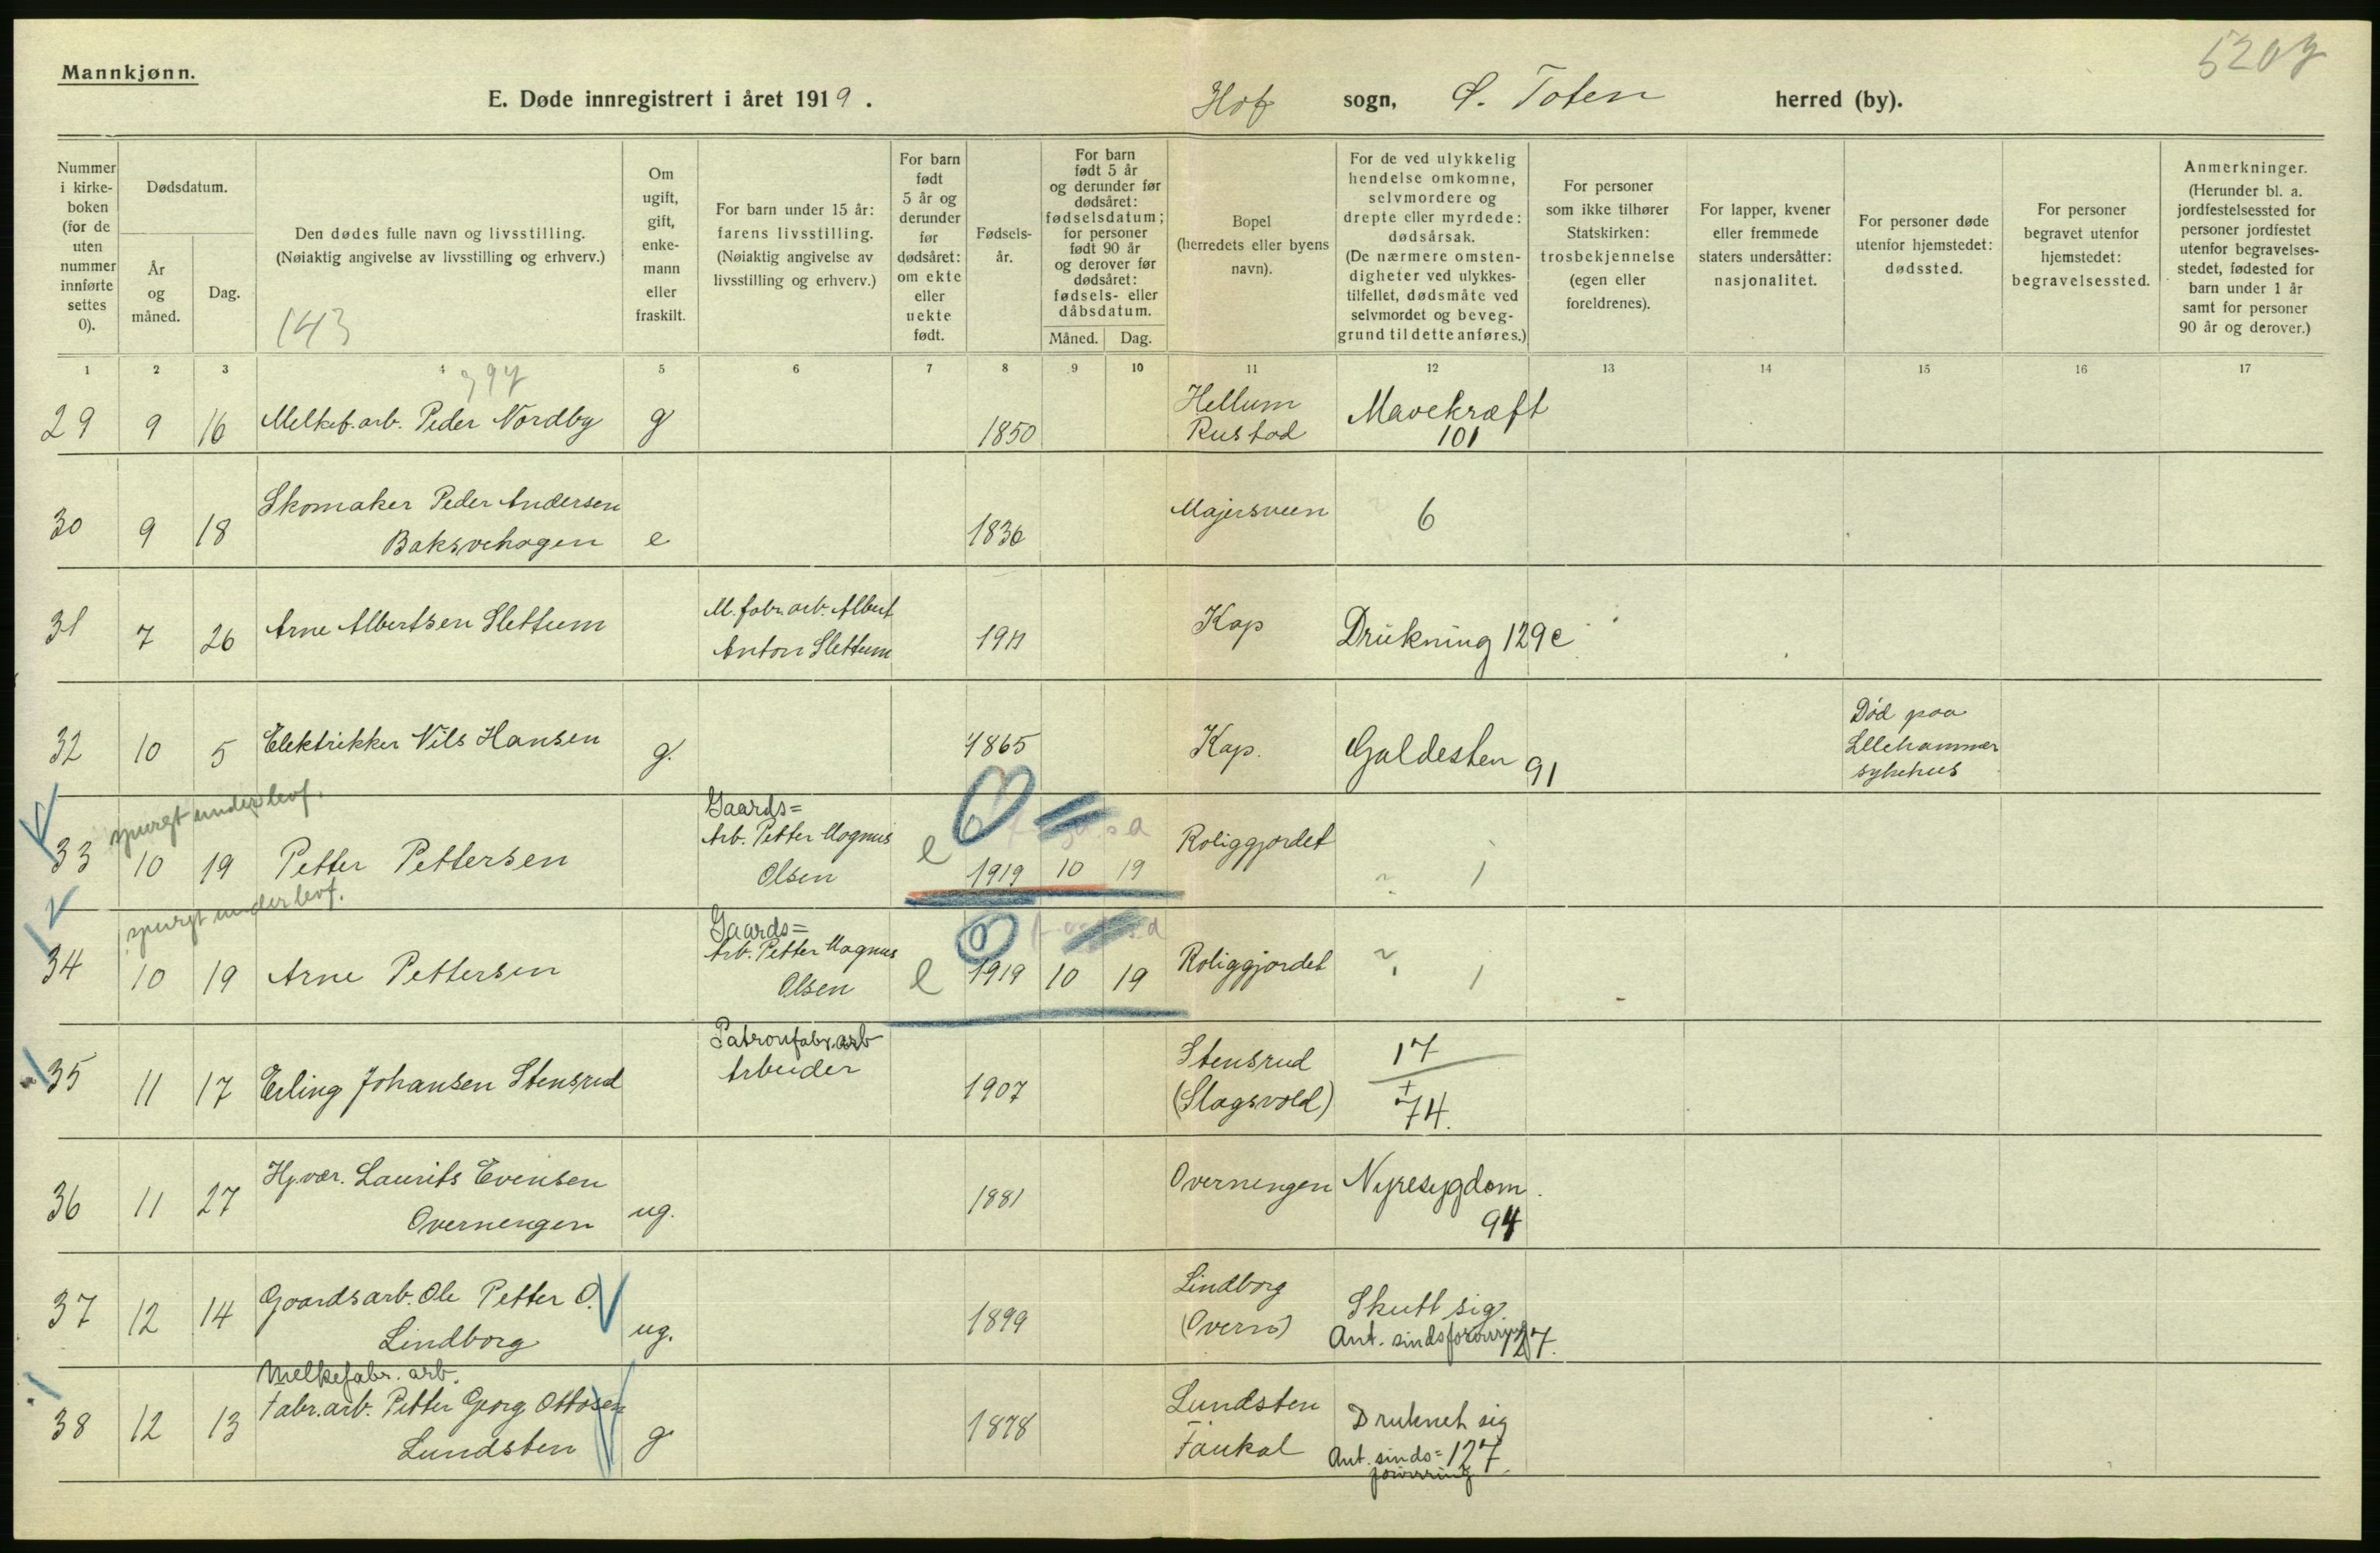 Mannkjønn.
5207
E. Døde innregistrert i året 1919.
Hof sogn, Ø. Toten herred (by).
Nummer i kirke-boken (for de uten nummer innførte settes 0).
Dødsdatum.
År og måned.
Dag.
Den dødes fulle navn og livsstilling.
(Nøiaktig angivelse av livsstilling og erhverv.)
143
Om ugift, gift, enke-mann eller fraskilt.
For barn under 15 år: farens livsstilling.
(Nøiaktig angivelse av livsstilling og erhverv.)
For barn født 5 år og derunder før dødsåret: om ekte eller uekte født.
Fødsels-år.
For barn født 5 år og derunder før dødsåret: fødselsdatum; for personer født 90 år og derover før dødsåret: fødsels- eller dåbsdatum.
Måned. Dag.
Bopel (herredets eller byens navn).
For de ved ulykkelig hendelse omkomne, selvmordere og drepte eller myrdede: dødsårsak.
(De nærmere omsten-digheter ved ulykkes-tilfellet, dødsmåte ved selvmordet og beveg-grund til dette anføres.)
For personer som ikke tilhører Statskirken: trosbekjennelse (egen eller foreldrenes).
For lapper, kvener eller fremmede staters undersåtter: nasjonalitet.
For personer døde utenfor hjemstedet: dødssted.
For personer begravet utenfor hjemstedet: begravelsessted.
Anmerkninger.
(Herunder bl. a. jordfestelsessted for personer jordfestet utenfor begravelses-stedet, fødested for barn under 1 år samt for personer 90 år og derover.)
1 2 3 4 5 6 7 8 9 10 11 12 13 14 15 16 17
29 9 16 Melkeb. arb. Peder Nordby g 1850 Hellum Rustad Mavekræft 101
30 9 18 Skomaker Peder Andersen Baksvehagen e 1836 Majersveen 6
31 7 26 Arne Albertsen Slettum M. fabr. arb. Albert Anton Slettum 1911 Kap Drukning 129c
32 10 5 Elektrikker Nils Hansen g. 1865 Kap. Galdesten 91 Død paa Lillehammer sykehus
spurgt under levf.
33 10 19 Petter Pettersen Gaards= Arb. Petter Magnus Olsen e 1919 10 19 Roliggjordet 1
spurgt under levf.
34 10 19 Arne Pettersen Gaards= Arb. Petter Magnus Olsen e 1919 10 19 Roliggjordet 1
35 11 17 Erling Johansen Stensrud Patronfabr. arb Arbeider 1907 Stensrud (Slagsvold) 17 + 74.
36 11 27 Hj.vær. Laurits Evensen Overnengen ug. 1881 Overnengen Nyresygdom. 94
37 12 14 Gaardsarb. Ole Petter O. Lindborg ug. 1899 Lindborg (Overn) Skutt sig Ant. sindsforvirring 127.
38 12 13 Melkefabr. arb. Fabr. arb. Petter Georg Ottosen Lundsten g 1878 Lundsten Faukal Druknet sig Ant. sinds= forvirring 127.